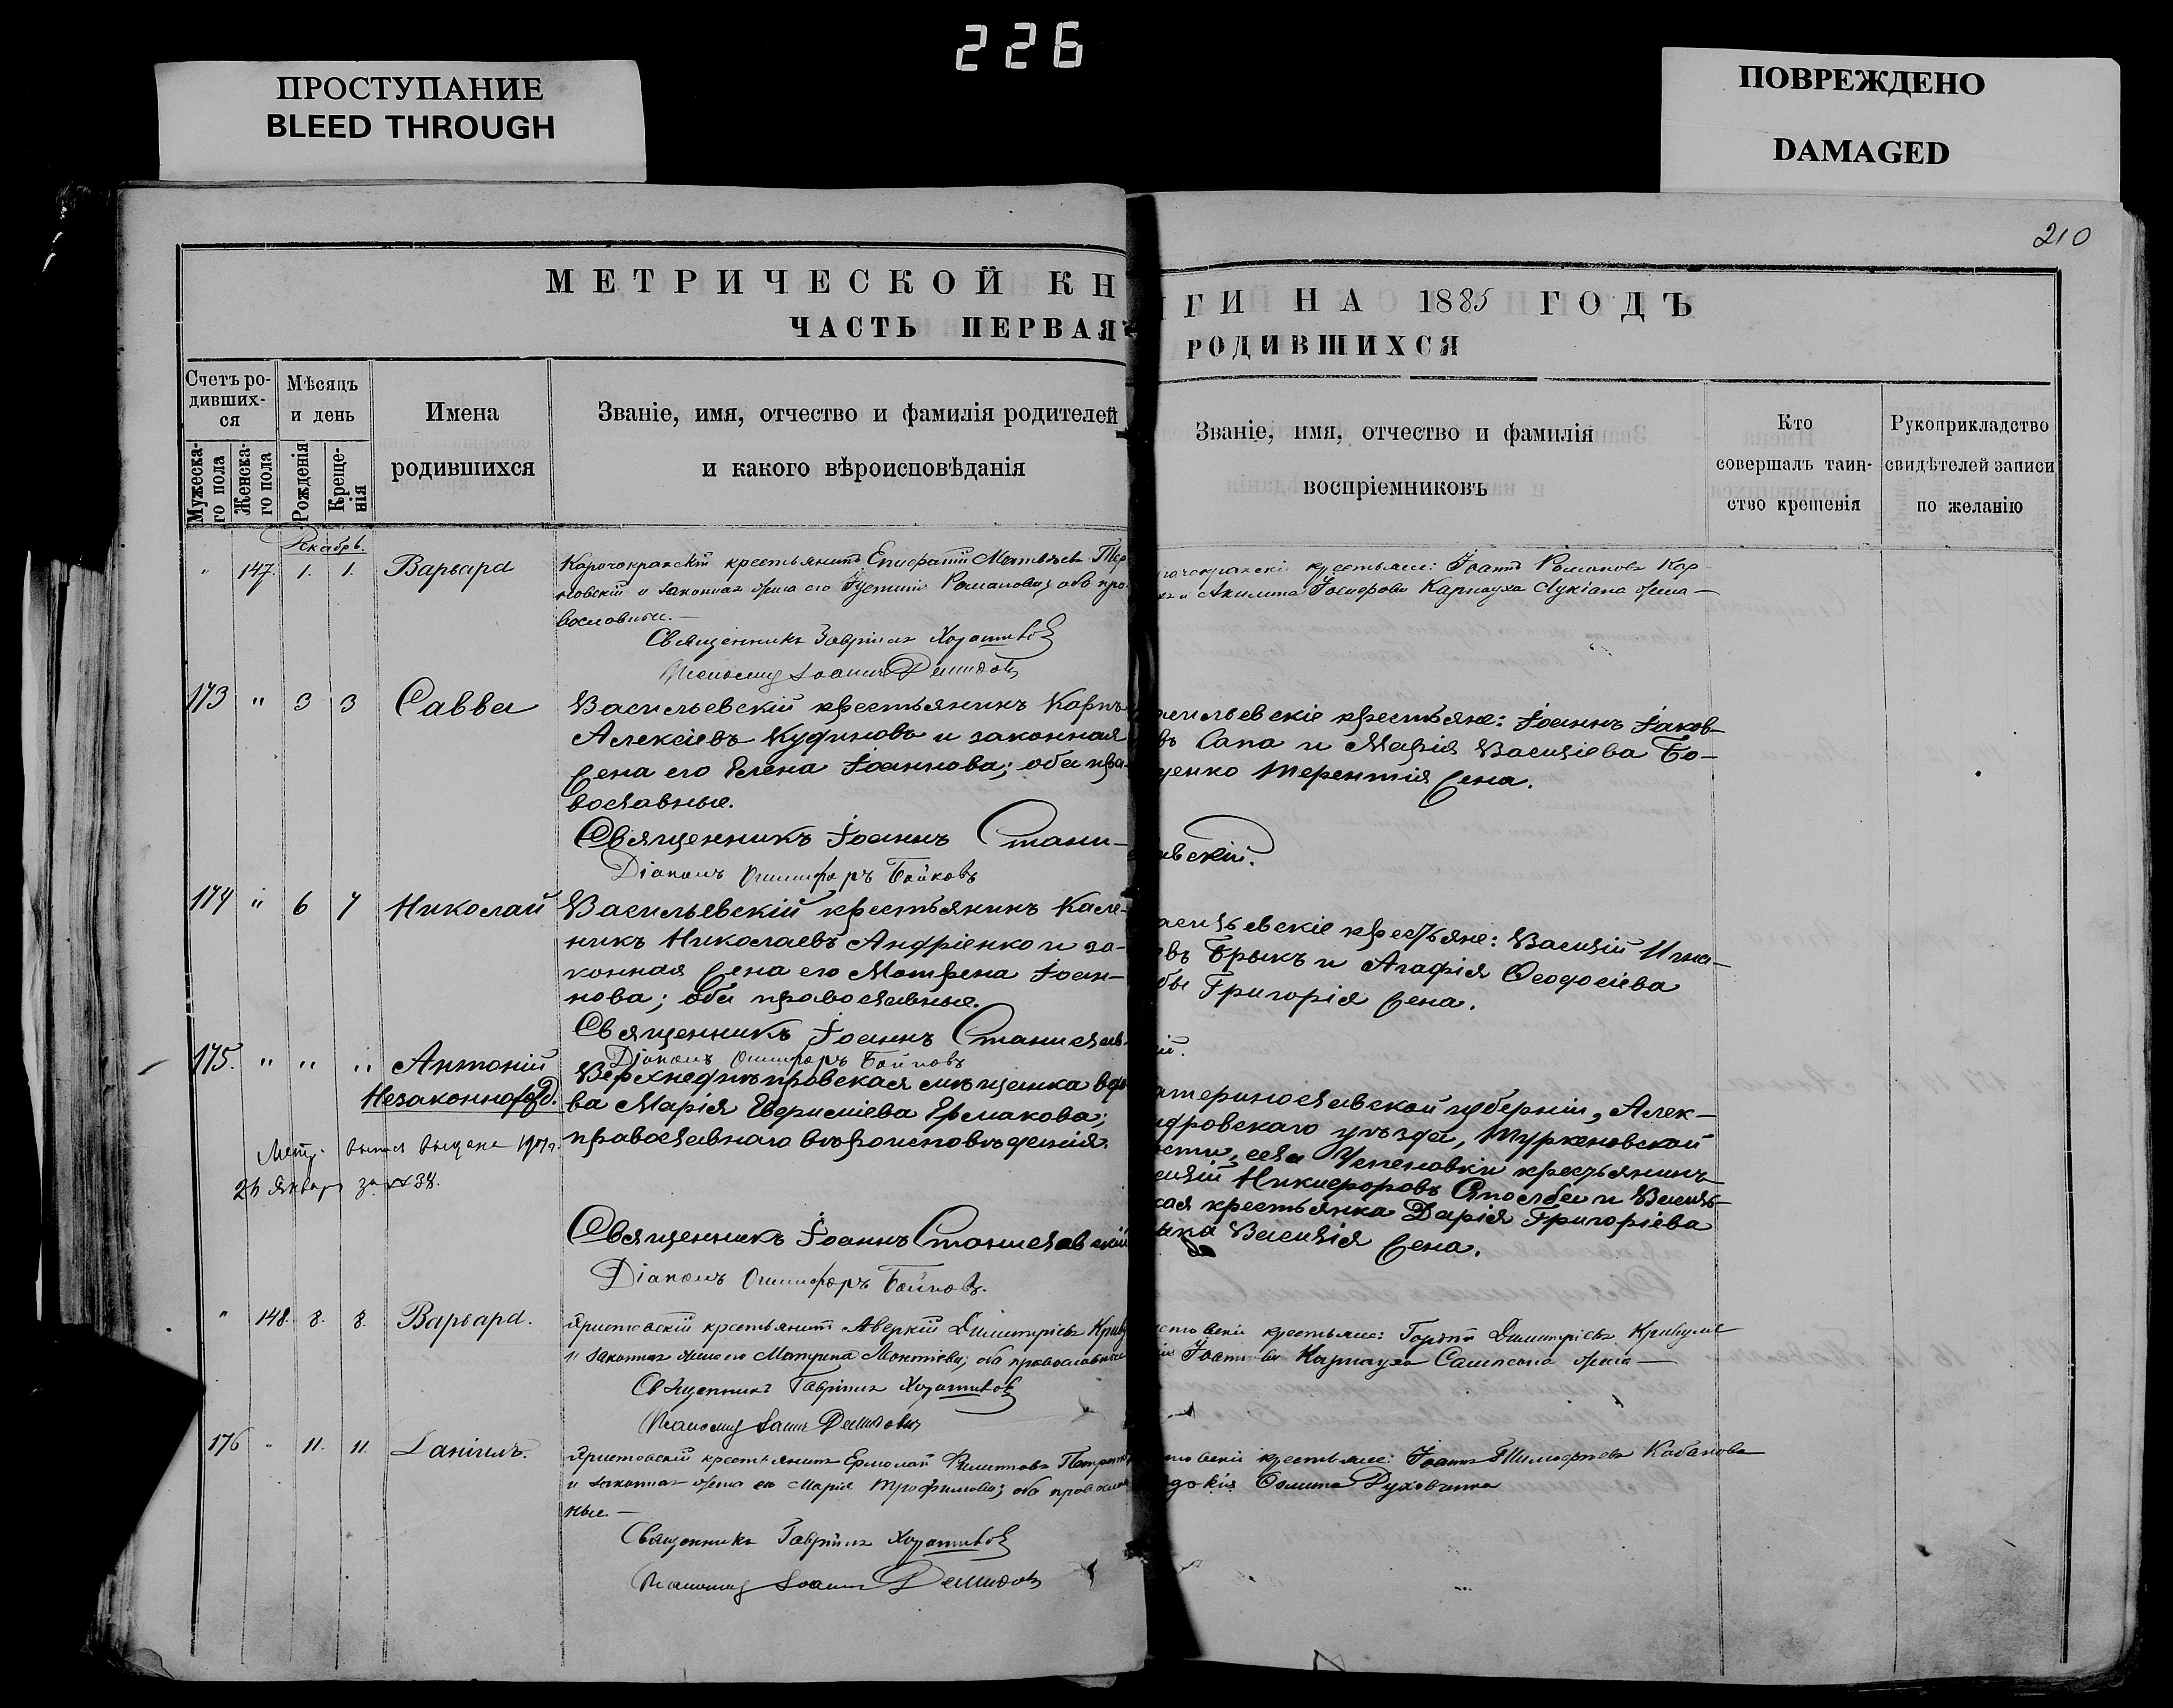 226
ПРОСТУПАНИЕ
BLEED THROUGH
ПОВРЕЖДЕНО
DAMAGED
210
МЕТРИЧЕСКОЙ КН
ГИ НА 1885 ГОДЪ
ЧАСТЬ ПЕРВАЯ
РОДИВШИХСЯ
Счетъ ро-
дивших-
ся
Мужеска-
го пола
Женска-
го пола
Мѣсяцъ
и день
Рожденія
Креще-
нія
Имена
родившихся
Званіе, имя, отчество и фамилія родителей
и какого вѣроисповѣданія
Званіе, имя, отчество и фамилія
воспріемниковъ
Кто
совершалъ таин-
ство крещенія
Рукоприкладство
свидѣтелей записи
по желанію
Декабрь.
" 147. 1. 1. Варвара
крестьянинъ Матвѣевъ
и законная жена его Романова; оба пра
вославные.
Священникъ Гавріилъ
Псаломщ Іоаннъ Демидовъ
крестьяне: Іоаннъ Романовъ Кар
и Акилина Іосифова Карнауха Лукіана жена
173 " 3 3 Савва
Васильевскій крестьянинъ Карпъ
Алексіевъ Кудиновъ и законная
жена его Елена Іоаннова; оба пра-
вославные.
Священникъ Іоаннъ Стани-
Діаконъ Онисифоръ Бойковъ
асильевскіе крестьяне: Іоаннъ Іаков-
въ Сапа и Марія Василіева Бо-
ценко Терентія жена.
авскій.
174 " 6 7 Николай
Васильевскій крестьянинъ Кале-
никъ Николаевъ Андріенко и за-
конная жена его Матрена Іоан-
нова; оба православные.
Священникъ Іоаннъ Станислав-
Діаконъ Онисифоръ Бойковъ
асильевскіе крестьяне: Василій Игна-
въ Брыкъ и Агафія Ѳеодосіева
бы Григорія жена.
ій.
175. " " " Антоній
Незаконнорожд.
Верхнеднѣпровская мѣщанка вдо
ва Марія Ермакова;
православнаго вѣроисповѣданія.
Метр. выпись выдана 1907 г.
26 Января за № 38.
Священникъ Іоаннъ Станиславскій
Діаконъ Онисифоръ Бойковъ.
атеринославской губерніи, Алек-
ндровскаго уѣзда, Туркеновской
ости, села Успеновки крестьянинъ
силій Никифоровъ и Василь-
кая крестьянка Дарія Григоріева
ыка Василія жена.
" 148. 8. 8. Варвара.
крестьянинъ Аверкій Димитріевъ
и законная жена его Матрена; оба православные
Священникъ Гавріилъ
Псаломщ Іоаннъ Демидовъ
крестьяне: Гордѣй Димитріевъ
Карнауха Сампсона жена
176 " 11. 11. Даніилъ.
крестьянинъ Ермолай Филиповъ
и законная жена его Марія Трофимова; оба православ
ные.
Священникъ Гавріилъ
Псаломщ Іоаннъ Демидовъ
крестьяне: Іоаннъ Тимофеевъ Кабановъ
докія Ѳомина